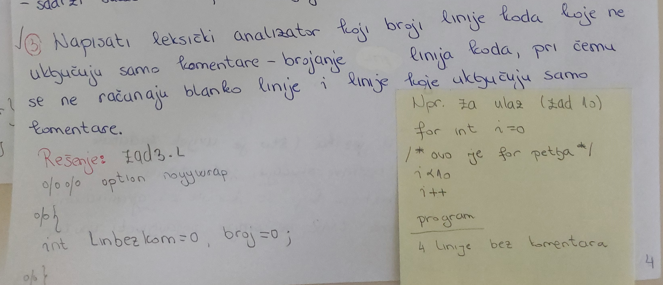 - sadrži
√ ③ Napisati leksički analizator koji broji linije koda koje ne
uključuju samo komentare - brojanje linija koda, pri čemu
se ne računaju blanko linije i linije koje uključuju samo
komentare.
Rešenje: zad3.L
%% option noyywrap
%{
int Linbezkom=0, broj=0;
%}
Npr. za ulaz (zad 10)
for int i=0
/* ovo je for petlja */
i<10
i++
program
4 linije bez komentara
4